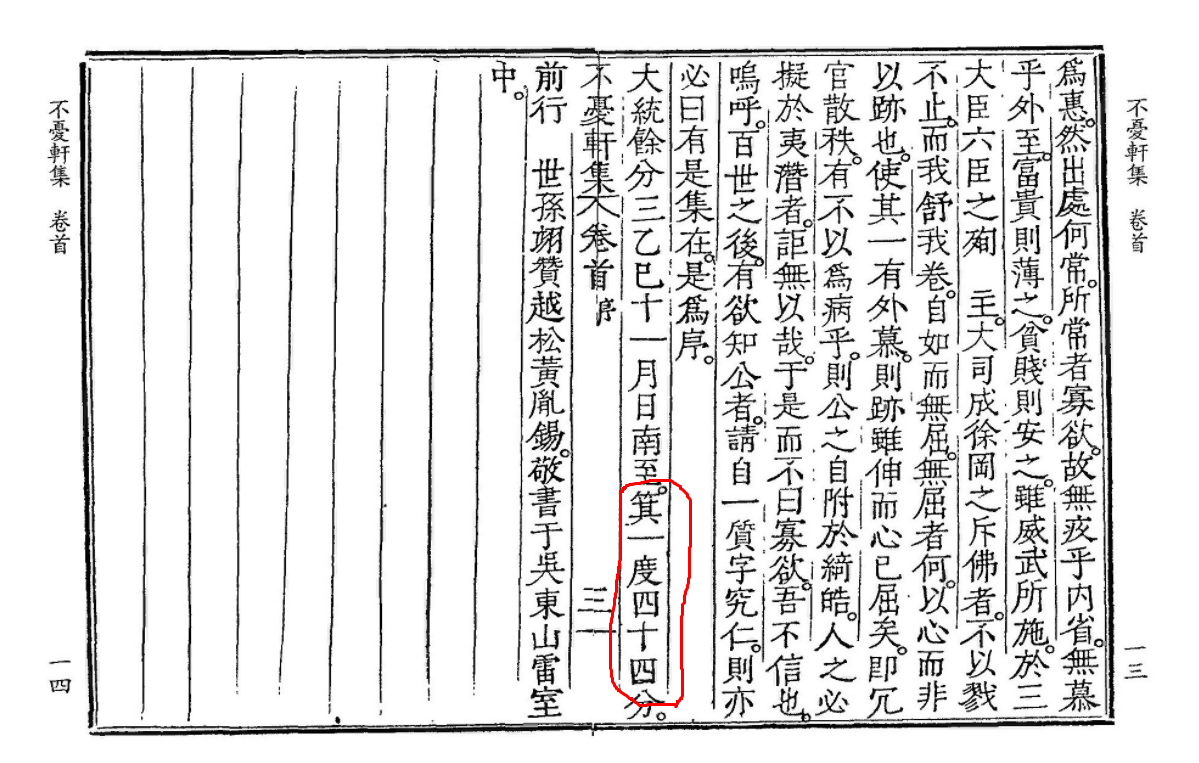 不憂軒集 卷首
一三
爲惠。然出處何常。所常者寡欲。故無疚乎內省。無慕
乎外至。富貴則薄之。貧賤則安之。雖威武所施。於三
大臣六臣之殉 主。大司成徐岡之斥佛者。不以戮
不止。而我舒我卷。自如而無屈。無屈者何。以心而非
以跡也。使其一有外慕。則跡雖伸而心已屈矣。卽冗
官散秩。有不以爲病乎。則公之自附於綺皓。人之必
擬於夷潛者。詎無以哉。于是而不曰寡欲。吾不信也。
嗚呼。百世之後。有欲知公者。請自一質字究仁。則亦
必曰有是集在。是爲序。
大統餘分三乙巳十一月日南至。箕一度四十四分。
不憂軒集卷首 序 三
前行 世孫翊贊越松黃胤錫。敬書于吳東山雷室
中。
不憂軒集 卷首
一四